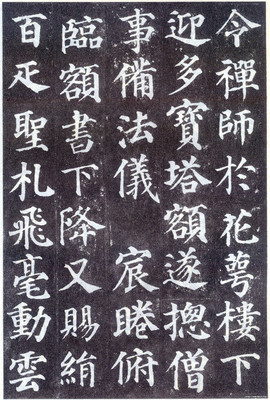 令禪師於花萼樓下
迎多寶塔額遂摠僧
事備法儀　宸睠俯
臨額書下降又賜絹
百疋聖札飛毫動雲